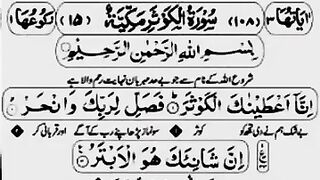 اٰيَاتُهَا ٣ (١٠٨) سُوْرَةُ الْكَوْثَرِ مَكِّيَّةٌ (١٥) رُكُوْعُهَا ١
بِسْمِ اللّٰهِ الرَّحْمٰنِ الرَّحِيْمِ
شروع اللہ کے نام سے جو بے حد مہربان نہایت رحم والا ہے
اِنَّاۤ اَعْطَيْنٰكَ الْكَوْثَرَ ؕ فَصَلِّ لِرَبِّكَ وَانْحَرْ ؕ
بے شک ہم نے دی تجھ کو کوثر سو نماز پڑھ اپنے رب کے آگے اور قربانی کر
اِنَّ شَانِئَكَ هُوَ الْاَبْتَرُ